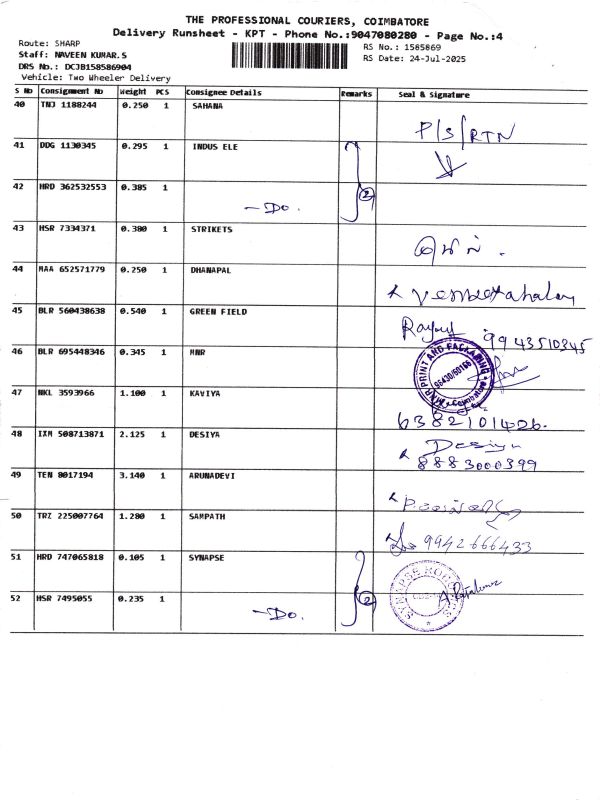 THE PROFESSIONAL COURIERS, COIMBATORE
Delivery Runsheet - KPT - Phone No.:9047080280 - Page No.:4
Route: SHARP
RS No.: 1585869
Staff: NAVEEN KUMAR.S
RS Date: 24-Jul-2025
DRS No.: DCJB158586904
Vehicle: Two Wheeler Delivery
S No Consignment No Weight PCS Consignee Details Remarks Seal & Signature
40 TNJ 1188244 0.250 1 SAHANA P/S/RTN
41 DDG 1130345 0.295 1 INDUS ELE
42 HRD 362532553 0.385 1 -Do. 2
43 HSR 7334371 0.380 1 STRIKETS
44 MAA 652571779 0.250 1 DHANAPAL
45 BLR 560438638 0.540 1 GREEN FIELD 9943510345
46 BLR 695448346 0.345 1 MNR MNR PRINT AND PACKAGING Coimbatore
47 NKL 3593966 1.100 1 KAVIYA 6382101426.
48 IXM 508713871 2.125 1 DESIYA Desiya
8883000399
49 TEN 8017194 3.140 1 ARUNADEVI
50 TRZ 225007764 1.280 1 SAMPATH 9942666433
51 HRD 747065818 0.105 1 SYNAPSE SYNAPSE
52 HSR 7495055 0.235 1 -Do. 2